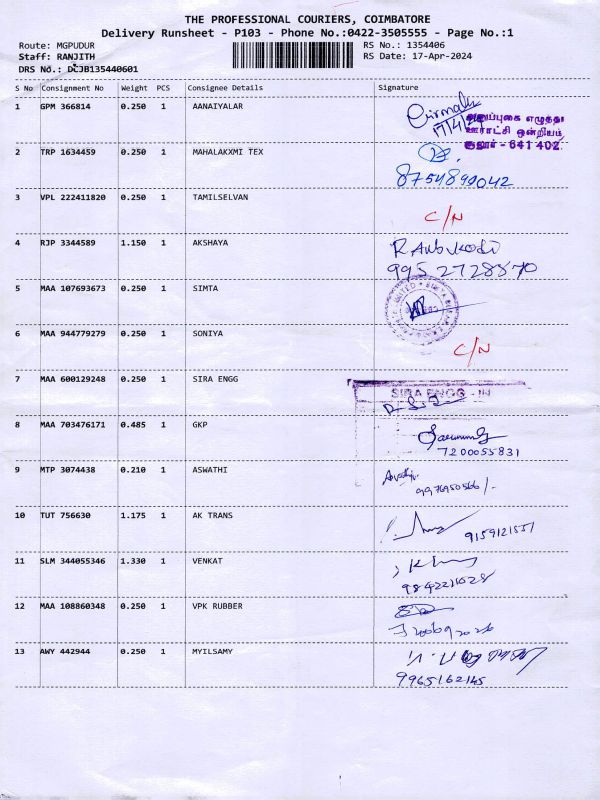 THE PROFESSIONAL COURIERS, COIMBATORE
Delivery Runsheet - P103 - Phone No.:0422-3505555 - Page No.:1
Route: MGPUDUR
RS No.: 1354406
Staff: RANJITH
RS Date: 17-Apr-2024
DRS No.: DCJB135440601
S No Consignment No Weight PCS Consignee Details Signature
1 GPM 366814 0.250 1 AANAIYALAR
17/4/24
எழுத்து
ஊராட்சி ஒன்றியம்
சூலூர் - 641 402.
2 TRP 1634459 0.250 1 MAHALAKXMI TEX
8754899042
3 VPL 222411820 0.250 1 TAMILSELVAN
C/N
4 RJP 3344589 1.150 1 AKSHAYA
9952728870
5 MAA 107693673 0.250 1 SIMTA
6 MAA 944779279 0.250 1 SONIYA
C/N
7 MAA 600129248 0.250 1 SIRA ENGG
SIRA ENGG
8 MAA 703476171 0.485 1 GKP
7200055831
9 MTP 3074438 0.210 1 ASWATHI
10 TUT 756630 1.175 1 AK TRANS
11 SLM 344055346 1.330 1 VENKAT
12 MAA 108860348 0.250 1 VPK RUBBER
13 AWY 442944 0.250 1 MYILSAMY
9965162145